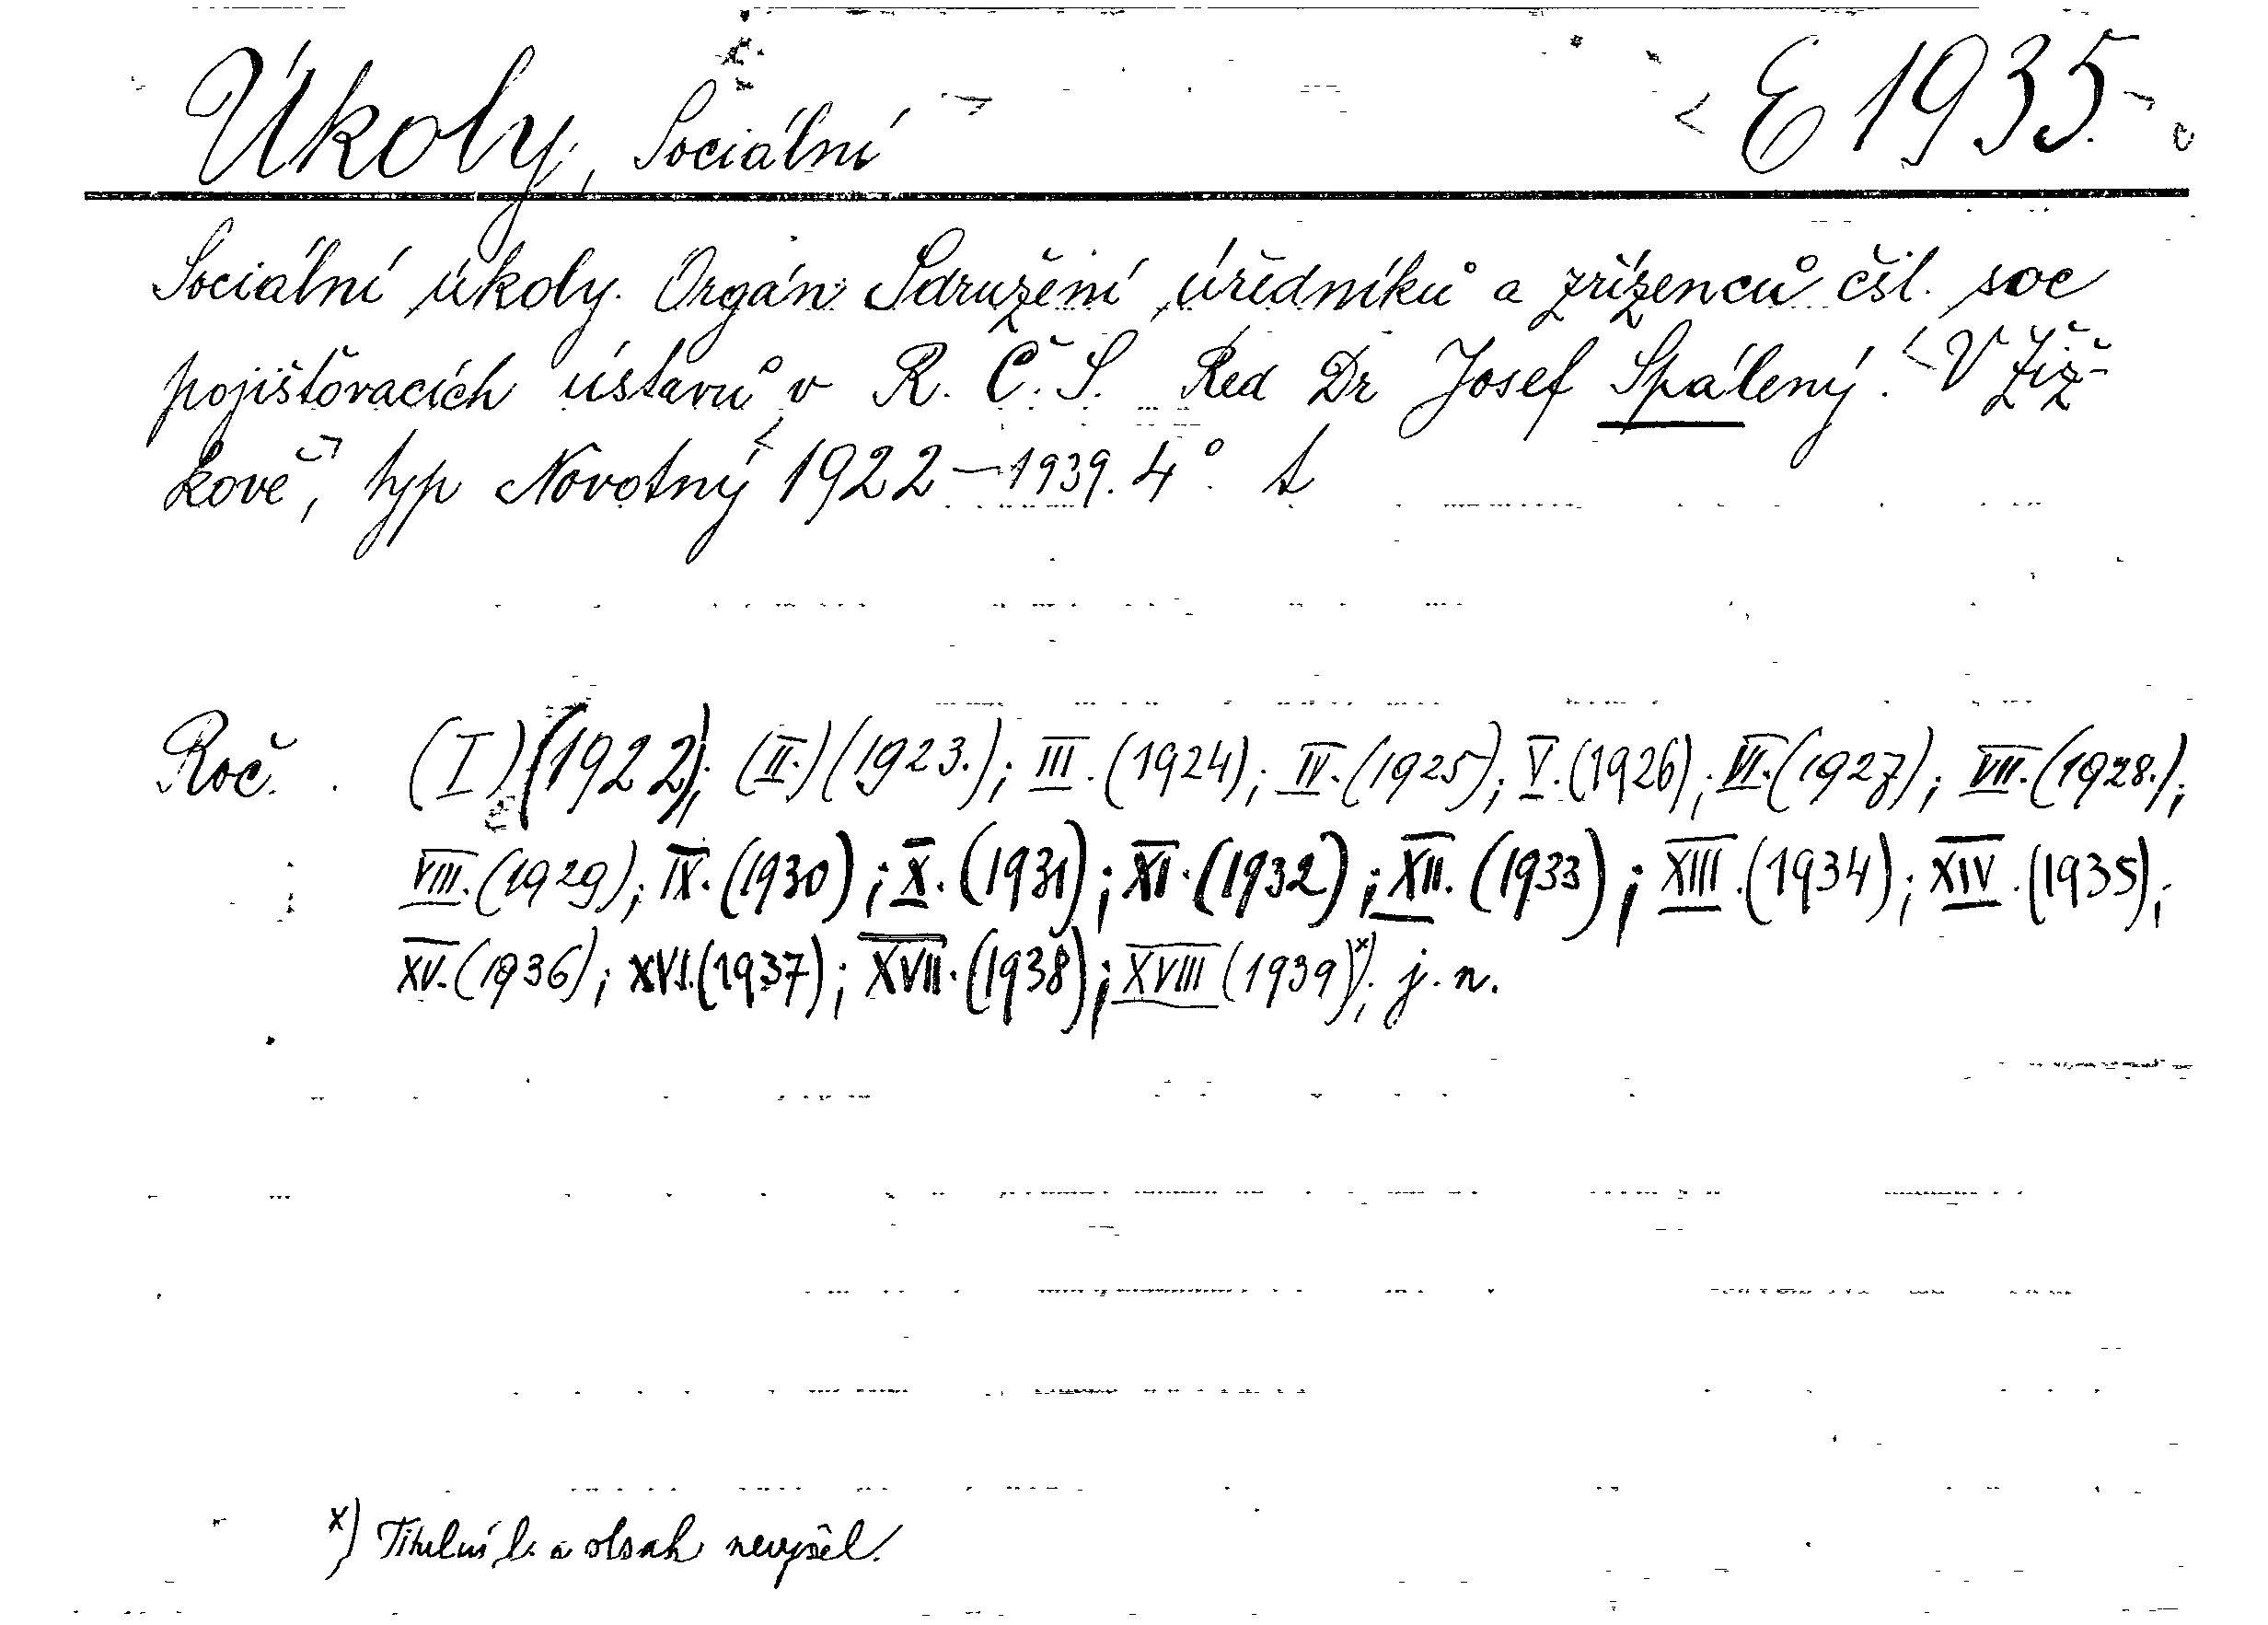 Úkoly, Sociální E 1935.
Sociální úkoly. Orgán Sdružení úředníků a zřízenců čsl. soc
pojišťovacích ústavů v R. Č. S. Red Dr Josef Spálený. V Žiž-
kově, typ Novotný 1922–1939. 4°. t
Roč. (I) (1922); (II.) (1923.); III. (1924); IV. (1925); V. (1926); VI. (1927); VII. (1928.);
VIII. (1929); IX. (1930); X. (1931); XI. (1932); XII. (1933); XIII. (1934); XIV. (1935);
XV. (1936); XVI. (1937); XVII. (1938); XVIII (1939)x); j. n.
x) Titulní l. a obsah nevyšel.